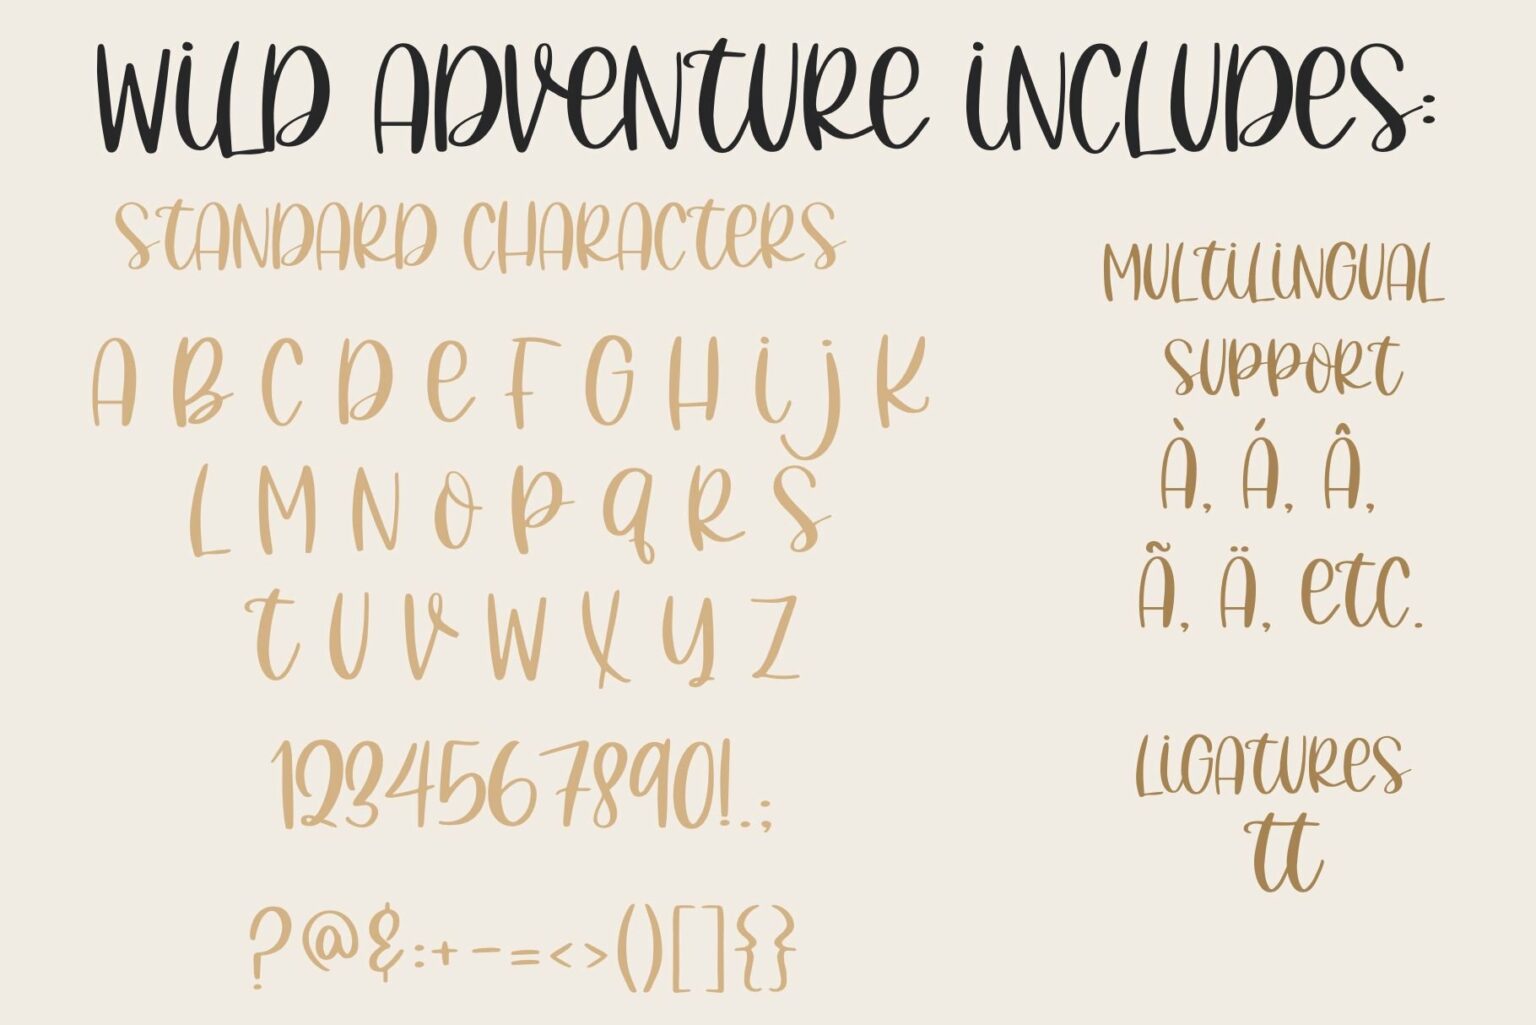 WiLD ADVeNTURe iNCLUDeS:
STANDARD CHARACTeRS
A B C D e F G H i j K
L M N O P q R S
T U V W X Y Z
1234567890!.;
?@&:+-=<>()[]{}
MULTiLiNGUAL
SUPPORT
À, Á, Â,
Ã, Ä, eTC.
LiGATUReS
tt